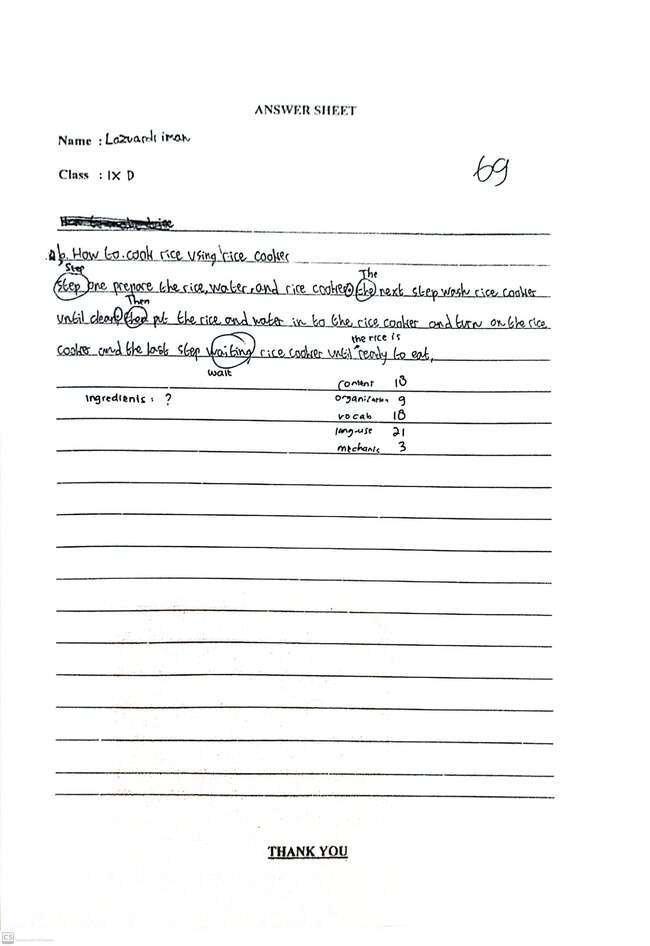 ANSWER SHEET
Name : Lazuardi iman
69
Class : IX D
b. How to cook rice using rice cooker
Step The
step one prepare the rice, water, and rice cooker. the next step wash rice cooker
Then
until clean. then put the rice and water in to the rice cooker and turn on the rice
the rice is
cooker and the last step waiting rice cooker until ready to eat.
wait
content 18
Ingredients : ? organization 9
vocab 18
lang-use 21
mechanic 3
THANK YOU
CS